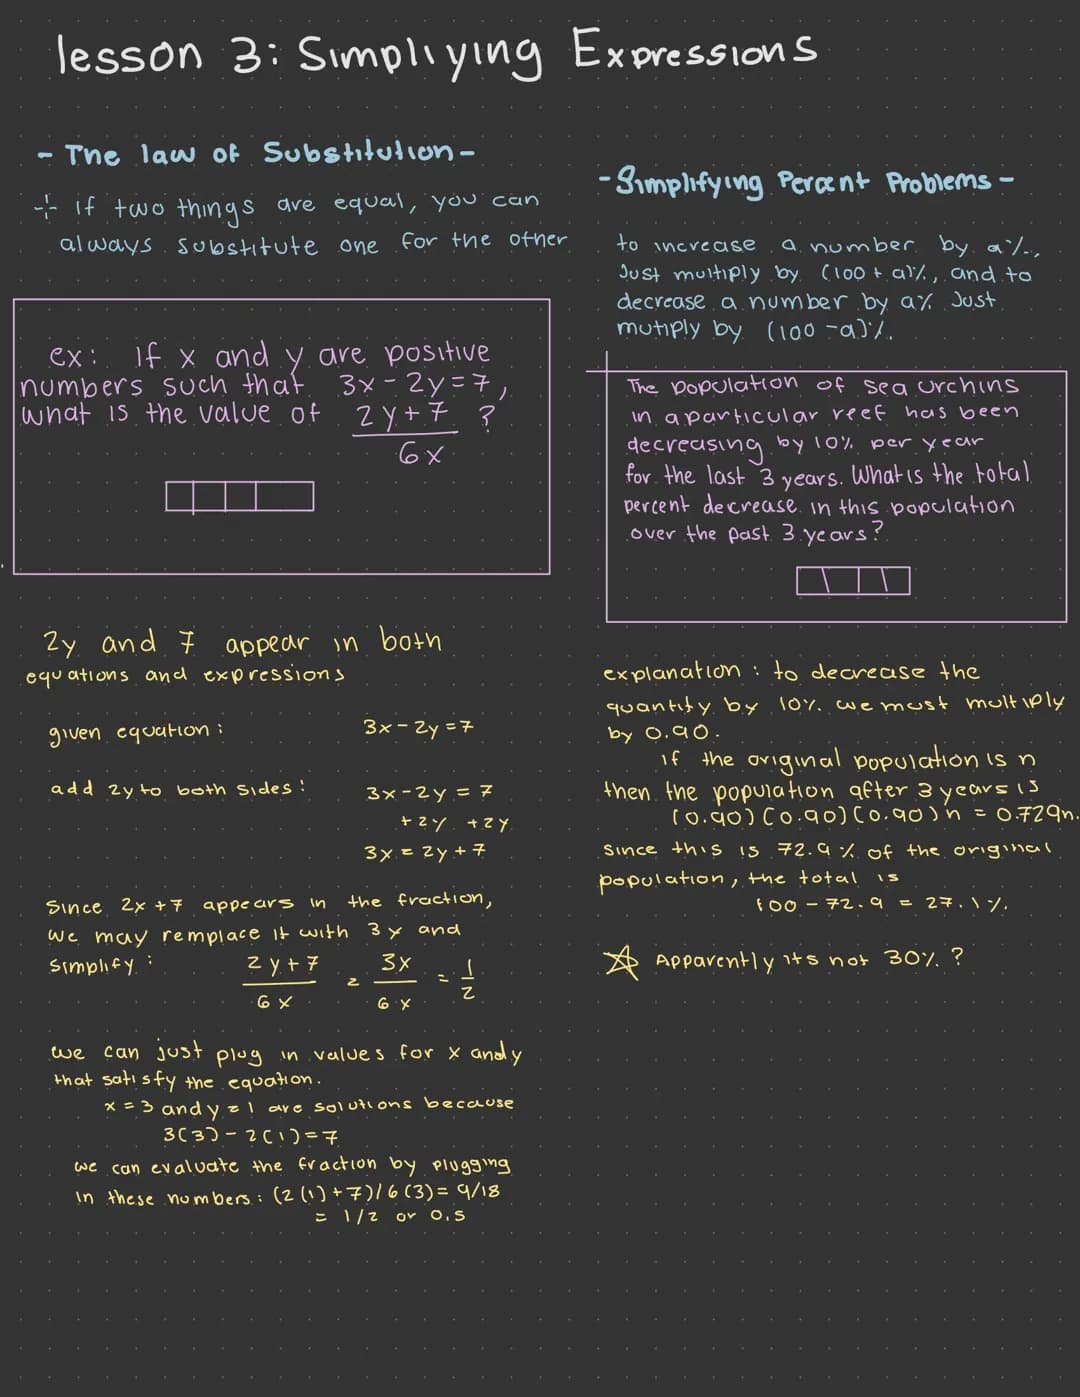 lesson 3: Simpliying Expressions
- The law of Substitution -
If two things are equal, you can
always substitute one for the other
ex: If x and y are positive
numbers such that 3x - 2y = 7,
what is the value of 2y + 7 ?
6x
2y and 7 appear in both
equations and expressions
given equation: 3x - 2y = 7
add 2y to both sides: 3x - 2y = 7
+ 2y + 2y
3x = 2y + 7
Since 2x + 7 appears in the fraction,
we may remplace it with 3x and
simplify: 2y + 7 = 3x = 1
6x 6x 2
we can just plug in values for x and y
that satisfy the equation.
x = 3 and y = 1 are solutions because
3(3) - 2(1) = 7
we can evaluate the fraction by plugging
in these numbers: (2(1) + 7)/6(3) = 9/18
= 1/2 or 0.5
- Simplifying Percent Problems -
to increase a number by a%,
Just multiply by (100 + a)%, and to
decrease a number by a% Just
mutiply by (100 - a)%.
The population of sea urchins
in a particular reef has been
decreasing by 10% per year
for the last 3 years. What is the total
percent decrease in this population
over the past 3 years?
explanation: to decrease the
quantity by 10% we must multiply
by 0.90.
if the original population is n
then the population after 3 years is
(0.90)(0.90)(0.90)n = 0.729n.
since this is 72.9% of the original
population, the total is
100 - 72.9 = 27.1%.
☆ Apparently its not 30%?